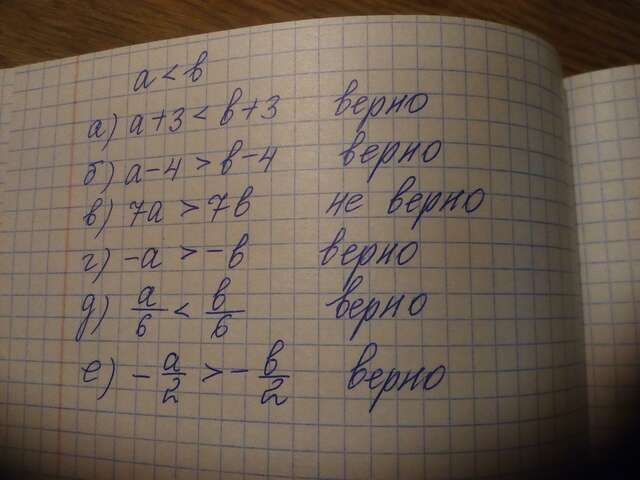 a < b
а) a+3 < b+3 верно
б) a-4 > b-4 верно
в) 7a > 7b не верно
г) -a > -b верно
д) a/6 < b/6 верно
е) -a/2 > -b/2 верно